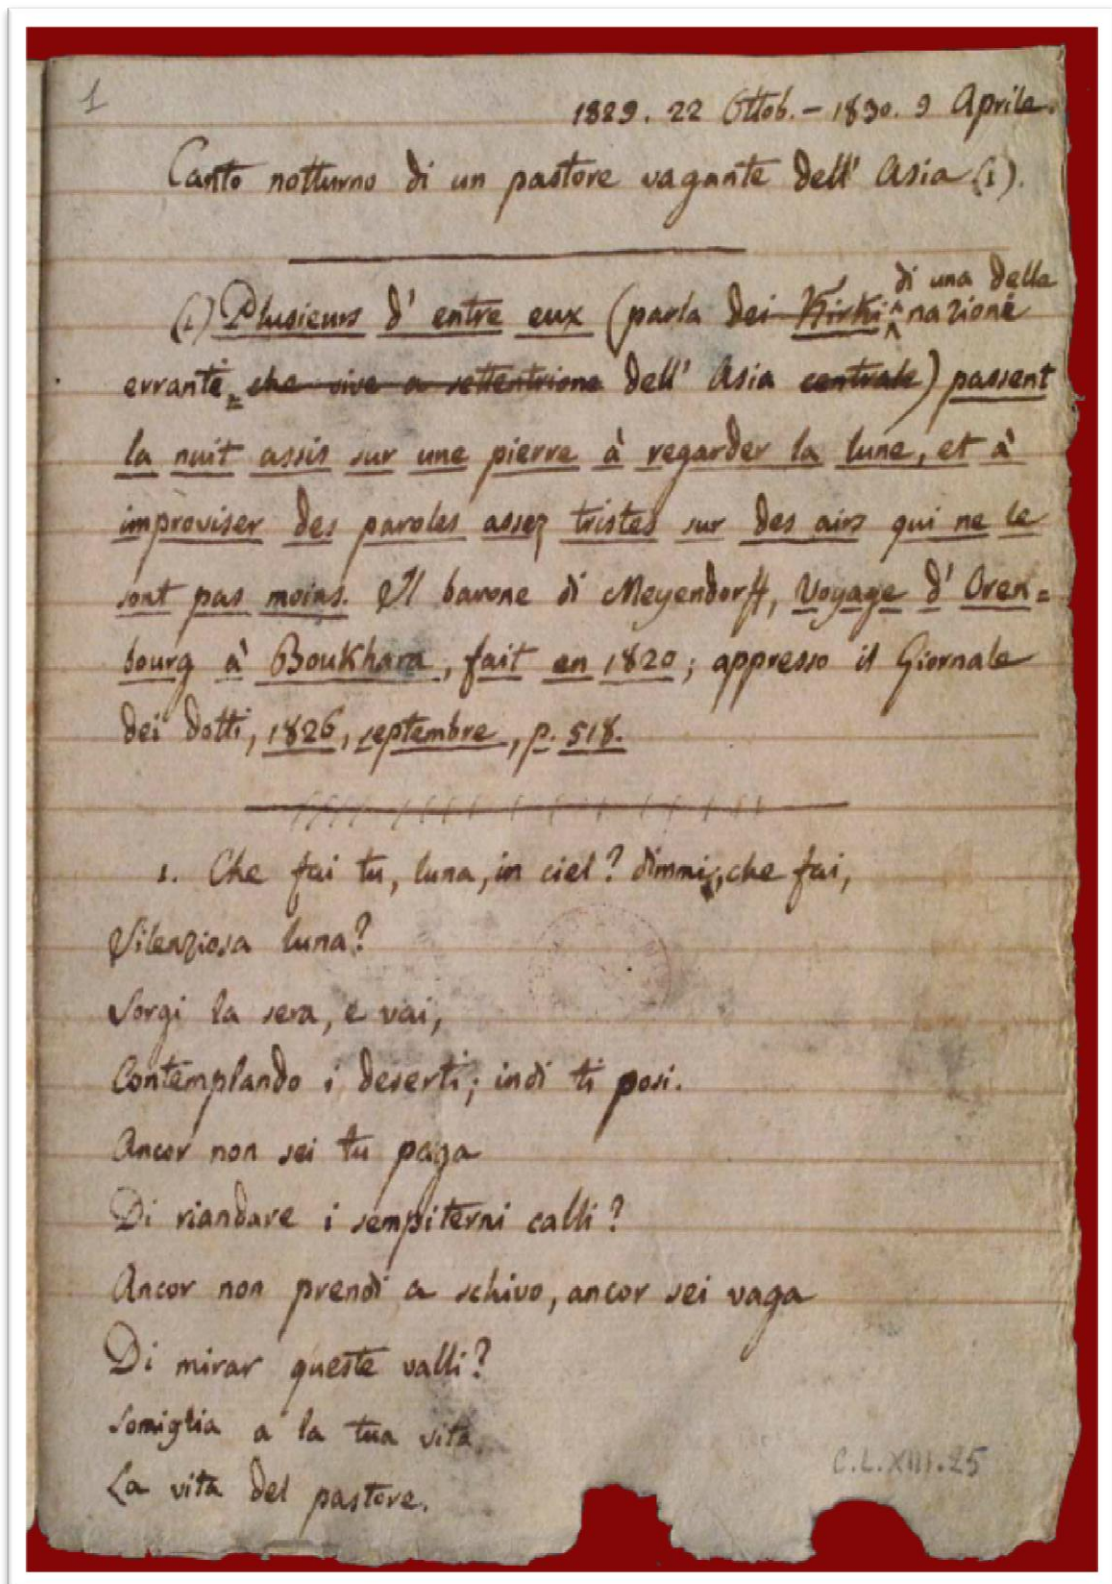 1
1829. 22 Ottob. - 1830. 9 Aprile.
Canto notturno di un pastore vagante dell' Asia (1).
di una delle
(1) Plusieurs d' entre eux (parla dei Kirki nazioni
erranti che vive a settentrione dell' Asia centrale) passent
la nuit assis sur une pierre à regarder la lune, et à
improviser des paroles assez tristes sur des airs qui ne le
sont pas moins. Il barone di Meyendorff, Voyage d' Oren=
bourg à Boukhara, fait en 1820; appresso il Giornale
dei dotti, 1826, septembre, p. 518.
1. Che fai tu, luna, in ciel? dimmi, che fai,
Silenziosa luna?
Sorgi la sera, e vai,
Contemplando i deserti; indi ti posi.
Ancor non sei tu paga
Di riandare i sempiterni calli?
Ancor non prendi a schivo, ancor sei vaga
Di mirar queste valli?
Somiglia a la tua vita
La vita del pastore.
C.L.XIII.25